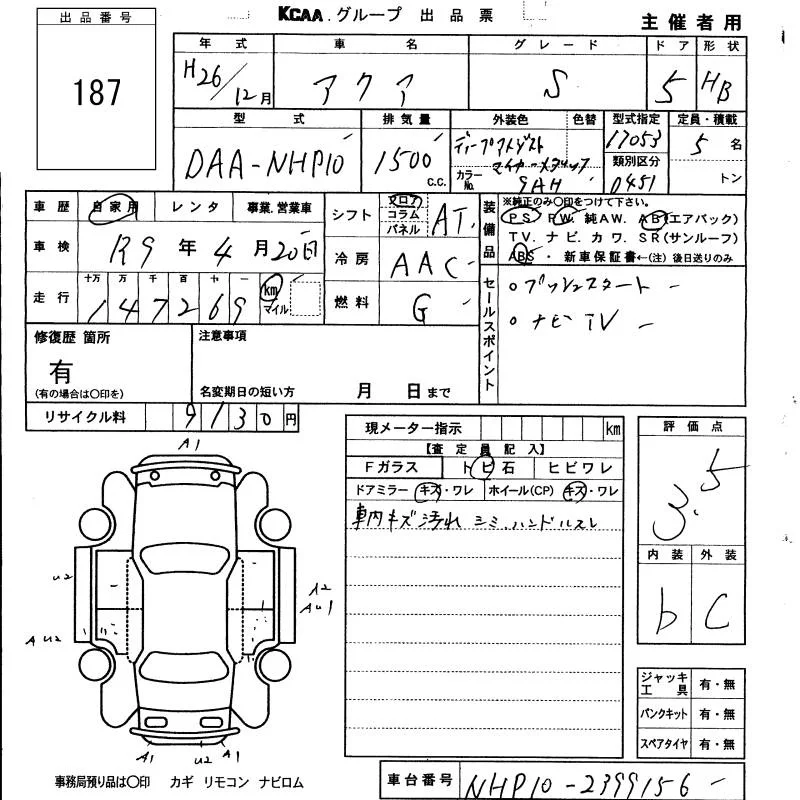 出品番号
187
KCAA.グループ 出品票
主催者用
年式 車名 グレード ドア 形状
H26/12月 アクア S 5 HB
型式 排気量 外装色 色替 型式指定 定員・積載
DAA-NHP10 1500 c.c. 17053 5名
カラーNo. 9AH 類別区分 0451 トン
車歴 自家用 レンタ 事業.営業車
車検 R9年4月20日
走行 十万 万 千 百 十 一
147269 km マイル
シフト フロア コラム パネル AT
冷房 AAC
燃料 G
装備品 ※純正のみ〇印をつけて下さい。
PS PW. 純AW. AB(エアバック)
TV. ナビ. カワ. SR(サンルーフ)
ABS・新車保証書←(注)後日送りのみ
セールスポイント
○プッシュスタート
○ナビ TV
修復歴 箇所
有
(有の場合は〇印を)
注意事項
名変期日の短い方 月 日まで
リサイクル料 9130円
現メーター指示 km
【査定員記入】
Fガラス トビ石 ヒビワレ
ドアミラー キズ・ワレ ホイール(CP) キズ・ワレ
車内キズ汚れ シミ.ハンドルスレ
評価点
3.5
内装 外装
b C
ジャッキ工具 有・無
パンクキット 有・無
スペアタイヤ 有・無
A1
U2
A2
AU1
A U2
A1 U2 A1
事務局預り品は〇印 カギ リモコン ナビロム
車台番号 NHP10-2399156